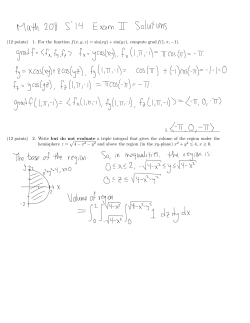 Math 2011 S'14 Exam II Solutions
(12 points) 1. For the function f(x, y, z) = sin(xy) + sin(yz), compute grad f(1, π, −1).
grad f = <fx, fy, fz> fx = ycos(xy), fx(1,π,-1) = πcos(π) = -π
fy = xcos(xy)+zcos(yz), fy(1,π,-1) = cos(π) + (-1)cos(-π) = -1+1=0
fz = ycos(yz), fz(1,π,-1) = πcos(-π) = -π
grad f(1,π,-1) = <fx(1,π,-1), fy(1,π,-1), fz(1,π,-1)> = <-π, 0, -π>
= <-π, 0, -π>
(12 points) 2. Write but do not evaluate a triple integral that gives the volume of the region under the
hemisphere z = √4 − x² − y² and above the region (in the xy-plane) x² + y² ≤ 4, x ≥ 0.
The base of the region So, in inequalities, the region is
0≤x≤2, -√4-x² ≤y≤ √4-x²
0≤z≤ √4-x²-y²
Volume of region
= ∫₀² ∫_{-√4-x²}^{√4-x²} ∫₀^{√4-x²-y²} 1 dz dy dx